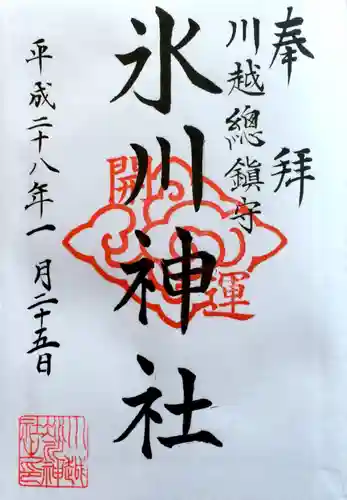 奉拝
川越總鎮守
氷川神社
開運
平成二十八年一月二十五日
川越
氷川神
社印